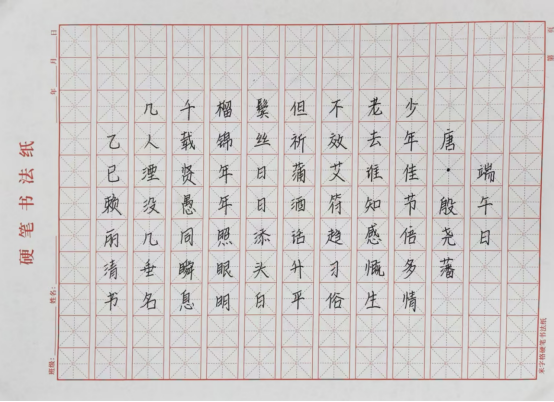 端午日
唐·殷尧藩
少年佳节倍多情
老去谁知感慨生
不效艾符趋习俗
但祈蒲酒话升平
鬓丝日日添头白
榴锦年年照眼明
千载贤愚同瞬息
几人湮没几垂名
乙巳赖雨清书
硬笔书法纸
班级: 姓名: 年 月 日
米字格硬笔书法纸